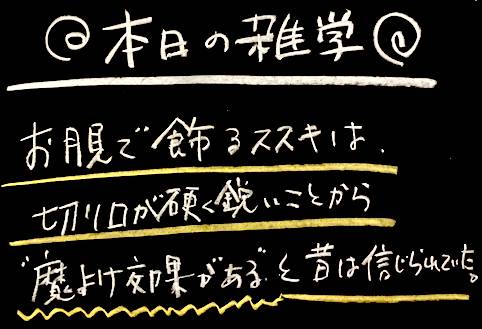 @本日の雑学@
お月見で飾るススキは、
切り口が硬く鋭いことから
"魔よけ効果がある"と昔は信じられていた。